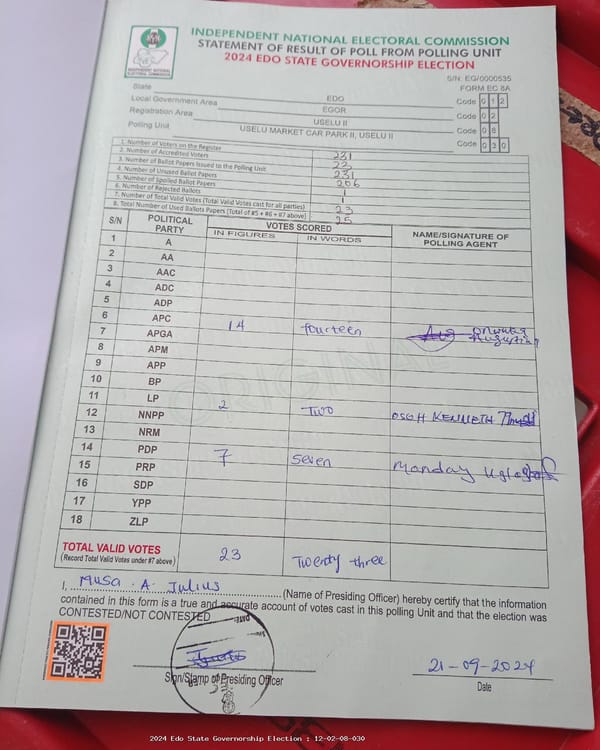 INDEPENDENT NATIONAL ELECTORAL COMMISSION
STATEMENT OF RESULT OF POLL FROM POLLING UNIT
2024 EDO STATE GOVERNORSHIP ELECTION
INDEPENDENT NATIONAL ELECTORAL COMMISSION
S/N: EG/0000535
FORM EC 8A
State EDO Code 12
Local Government Area EGOR Code 02
Registration Area USELU II Code 08
Polling Unit USELU MARKET CAR PARK II, USELU II Code 030
1. Number of Voters on the Register 231
2. Number of Accredited Voters
3. Number of Ballot Papers Issued to the Polling Unit 231
4. Number of Unused Ballot Papers 206
5. Number of Spoiled Ballot Papers 1
6. Number of Rejected Ballots 1
7. Number of Total Valid Votes (Total Valid Votes cast for all parties) 23
8. Total Number of Used Ballots Papers (Total of #5 + #6 + #7 above) 25
S/N POLITICAL PARTY VOTES SCORED NAME/SIGNATURE OF POLLING AGENT
IN FIGURES IN WORDS
1 A
2 AA
3 AAC
4 ADC
5 ADP
6 APC 14 fourteen Augustine
7 APGA
8 APM
9 APP
10 BP
11 LP 2 Two OSGH KENNETH
12 NNPP
13 NRM
14 PDP 7 Seven Monday
15 PRP
16 SDP
17 YPP
18 ZLP
ORIGINAL
TOTAL VALID VOTES 23 Twenty three
(Record Total Valid Votes under #7 above)
I, Musa A. Julius (Name of Presiding Officer) hereby certify that the information
contained in this form is a true and accurate account of votes cast in this polling Unit and that the election was
CONTESTED/NOT CONTESTED
Sign/Stamp of Presiding Officer
21-09-2024
Date
2024 Edo State Governorship Election : 12-02-08-030